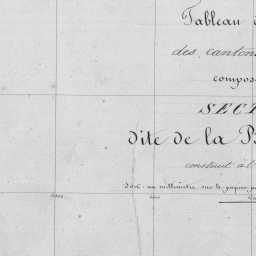 Tableau
des cantons
compos
SECT
dite de la B
construit à l'
Soit un millimètre sur le papier p